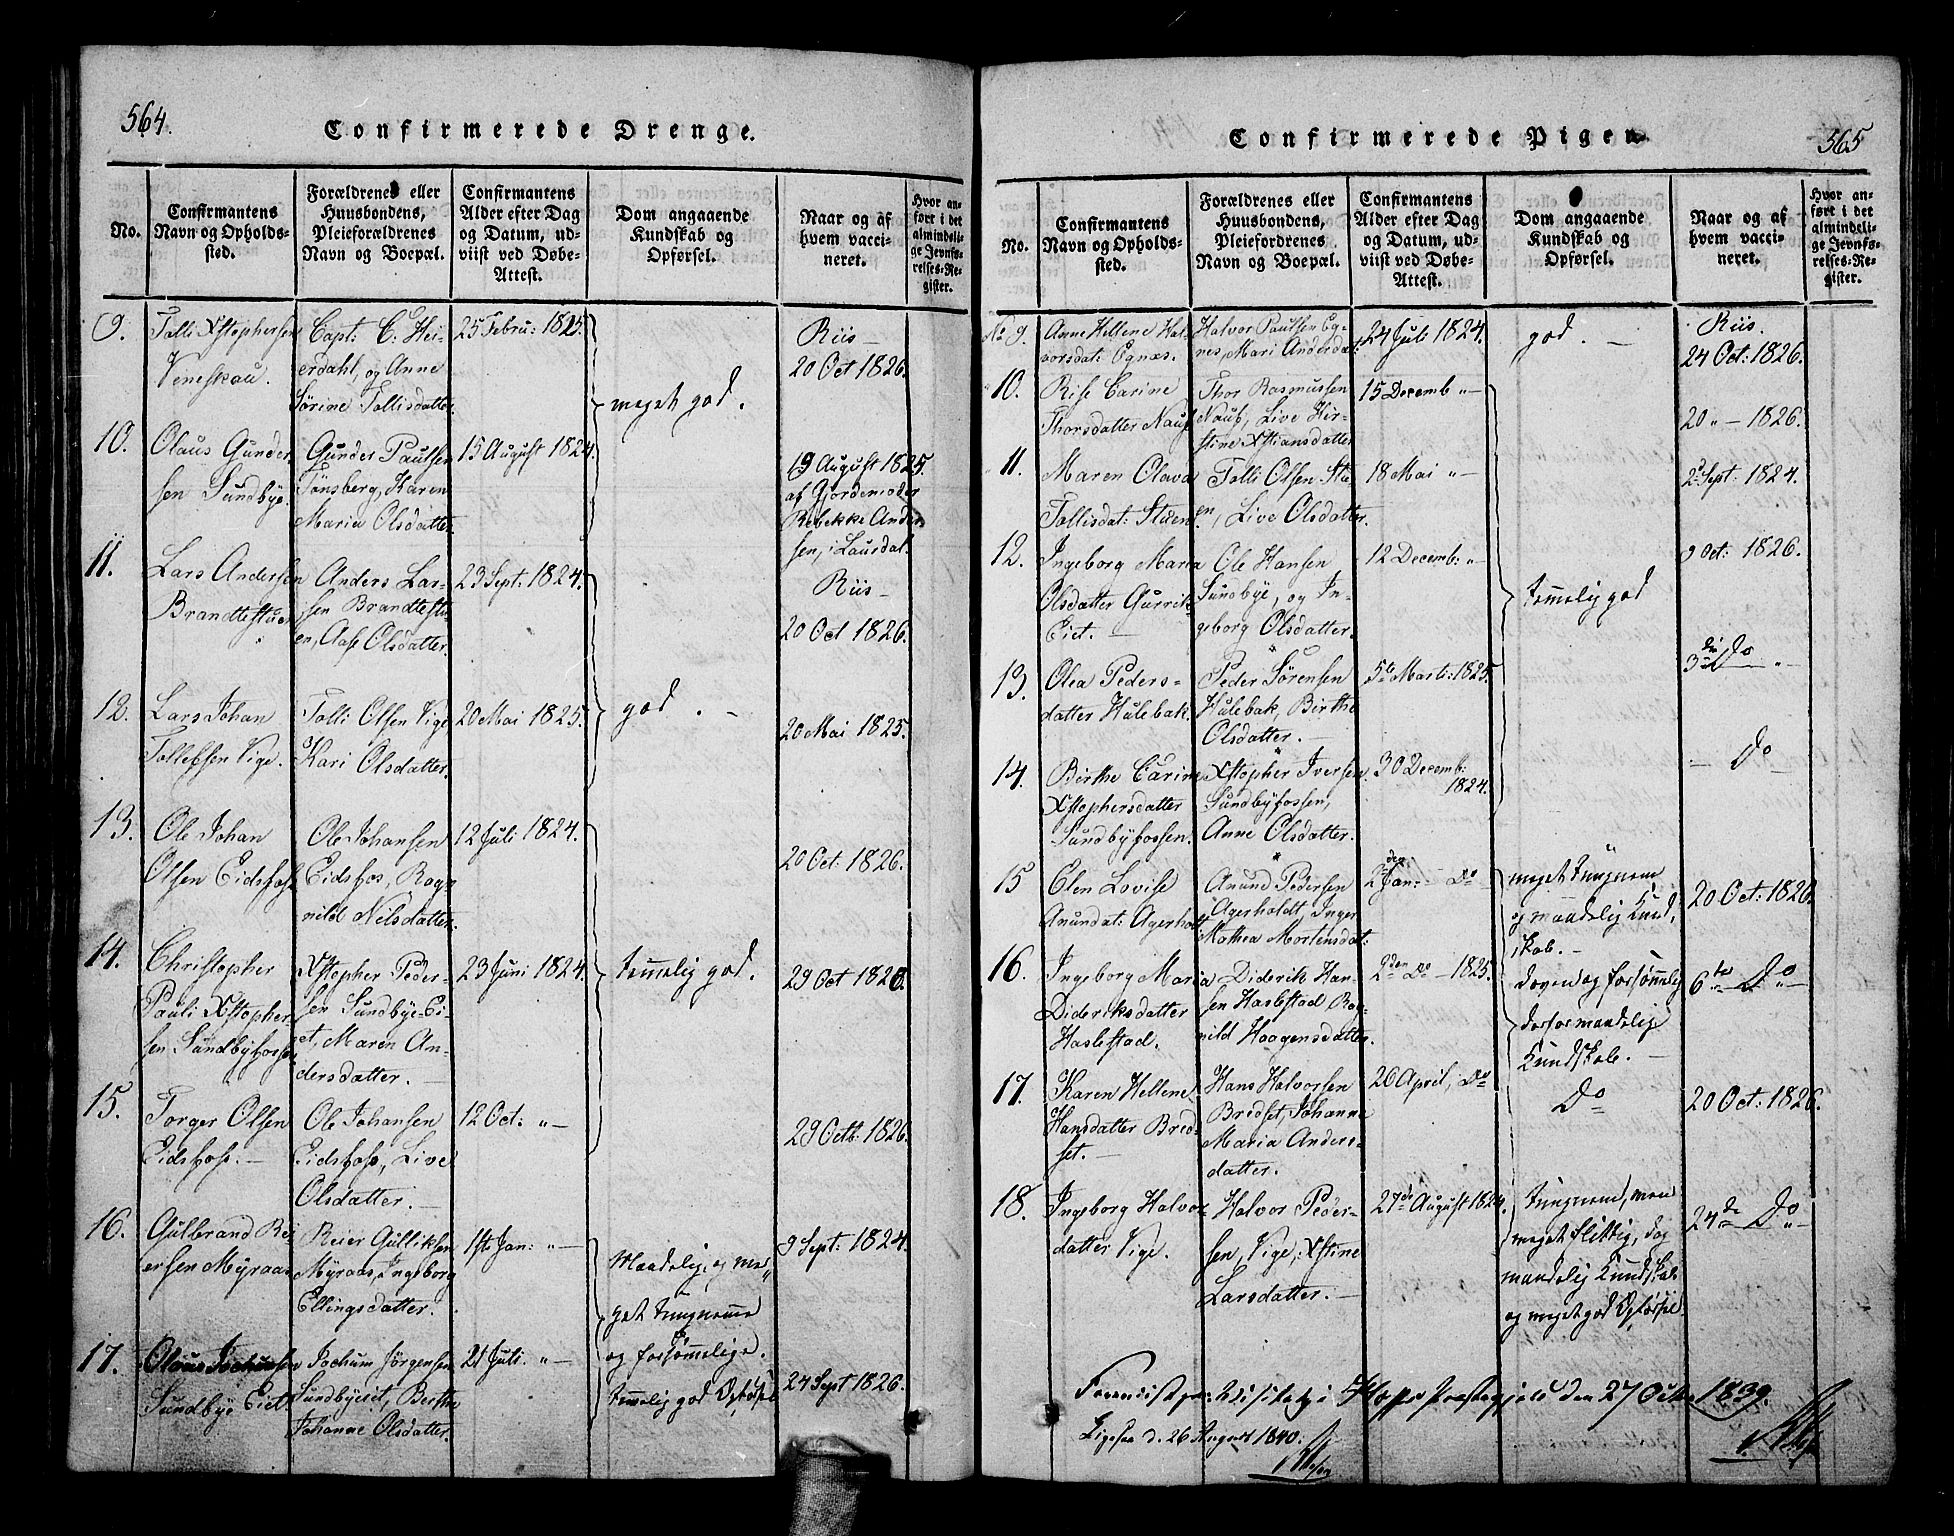 564.
Confirmerede Drenge.
No.
Confirmantens
Navn og Opholds-
sted.
Forældrenes eller
Huusbondens,
Pleieforældrenes
Navn og Boepæl.
Confirmantens
Alder efter Dag
og Datum, ud-
viist ved Døbe-
Attest.
Dom angaaende
Kundskab og
Opførsel.
Naar og af
hvem vacci-
neret.
Hvor an-
ført i det
almindeli-
ge Jevnfø-
relses-Re-
gister.
9.
Tolli Xstophersen
Veneskau.
Capt: C. Hei-
erdahl, og Anne
Sörine Tollisdatter
25 Febru: 1825.
meget god.
Riis-
20 Oct 1826.
10.
Olaus Gunder-
sen Sundbye.
Gunder Paulsen
Tönsberg, Karen
Maria Olsdatter.
15 August 1824.
19 August 1825
af Gjordemoder
Rebekke Ander
sen, i Lausdal.
11.
Lars Andersen
Brandtestuen
Anders Lar-
sen Brandtestu-
en, Aase Olsdatter.
23 Sept: 1824.
Riis-
20 Oct 1826.
12.
Lars Johan
Tollefsen Vige.
Tolli Olsen Vige
Kari Olsdatter.
20 Mai 1825.
god. -
20 Mai 1825.
13.
Ole Johan
Olsen Eidsfos
Ole Johansen
Eidsfos, Rag-
nild Nilsdatter.
12 Juli 1824.
20 Oct: 1826.
14.
Christopher
Pauli Xstopher-
sen Sundbyfossen
Xstopher Peder-
sen Sundbye-Ei-
et, Maren An-
dersdatter. -
23 Juni 1824.
temmelig god.
29 Oct 1826.
15.
Torger Olsen
Eidsfos. -
Ole Johansen
Eidsfos, Live
Olsdatter. -
12 Oct: " -
29 Octb: 1826.
16.
Gulbrand Rei-
ersen Myraas
Reier Gulliksen
Myraas, Ingeborg
Ellingsdatter.
1ste Jan: " -
Maadelig, og me-
get tungnemme
og forsømmelige.
temmelig god Opförsel
9 Sept: 1824.
17.
Olaus Jochumsen
Sundbye Eiet
Jochum Jörgensen
Sundbyeiet, Berthe
Johanne Olsdatter.
21 Juli. " -
24 Sept 1826.
565
Confirmerede Piger.
No.
Confirmantens
Navn og Opholds-
sted.
Forældrenes eller
Huusbondens,
Pleiefordrenes
Navn og Boepæl.
Confirmantens
Alder efter Dag
og Datum, ud-
viist ved Døbe-
Attest.
Dom angaaende
Kundskab og
Opførsel.
Naar og af
hvem vacci-
neret.
Hvor an-
ført i det
almindeli-
ge Jevnfø-
relses-Re-
gister.
No 9.
Anne Hellene Hal-
vorsdat: Egnæs.
Halvor Paulsen Eg-
nes, Mari Andersdat:
24 Juli 1824.
god. -
Riis.
24 Oct: 1826.
10.
Rise Carine
Thorsdatter Nauf
Thor Rasmussen
Nauf, Live Kir-
stine Xstiansdatter
15 Decemb " -
20 " - 1826.
11.
Maren Olava
Tollisdat: Stuen
Tolli Olsen Stu-
en, Live Olsdatter.
18 Mai " -
2 Sept: 1824.
12.
Ingeborg Maria
Olsdatter Gurrik
Eiet. -
Ole Hansen
Sundbye, og In-
geborg Olsdatter.
12 Decemb: " -
temmelig god
9 Oct: 1826.
13.
Olea Peders-
datter Hulebak.
Peder Sörensen
Hulebak, Birthe
Olsdatter. -
5te Marti: 1825.
3die Do "
14.
Birthe Carine
Xstophersdatter
Sundbyfossen.
Xstopher Iversen
Sundbyfossen,
Anne Olsdatter.
30 Decemb:
1824.
- Do -
15
Elen Lovise
Anundat: Agerholt
Anund Pedersen
Agerholdt, Inger
Mathea Mortensdat:
2den Jan: - Do
meget tungnem
og maadelig Kund-
skab. -
20 Oct: 1826.
16.
Ingeborg Maria
Dideriksdatter
Haslestad.
Diderik Han-
sen Haslestad Rag-
nild Haagensdatter.
2den Do - 1825.
doven og forsømmelig
derfor maadelig
Kundskab. -
6te Do "
17.
Karen Hellene
Hansdatter Bred-
set. -
Hans Halvorsen
Bredset, Johanne
Maria Anders-
datter.
26 April, Do
Do
20 Oct: 1826.
18.
Ingeborg Halvor-
datter Vige.
Halvor Peder-
sen, Vige, Xstine
Larsdatter. -
27de August 1824.
tungnem, men
meget flittig, dog
maadelig Kundskab
og meget god Opførsel
24de Do "
Foreviist ved Visitats i Hoffs Præstegjeld den 27 Octbr 1839.
Ligesaa d. 26 August 1840.